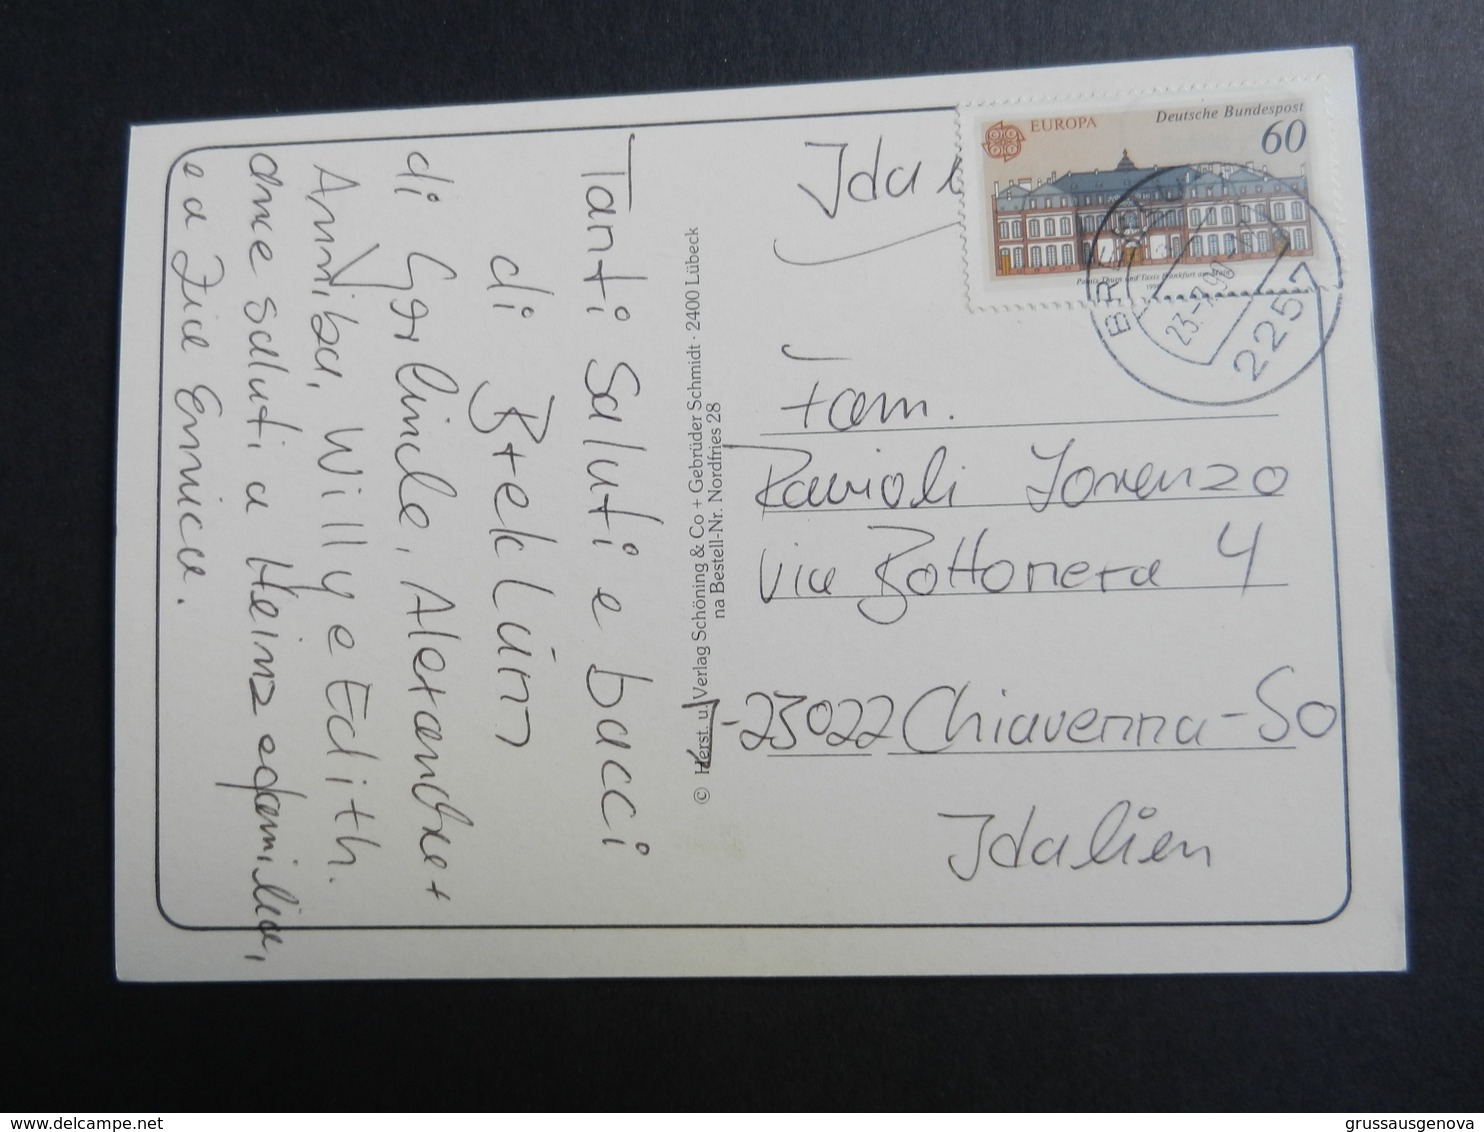 Tanti Saluti e bacci
di Breklum
di Gerlinde, Alexandre +
Anniba, Willy e Edith.
ane saluti a Heinz e familia,
e a Zia Ennica.
© Herst. u. Verlag Schöning & Co + Gebrüder Schmidt · 2400 Lübeck
na Bestell-Nr. Nordfries 28
EUROPA
Deutsche Bundespost
60
Palais Thurn und Taxis Frankfurt am Main
1990
2257
Fam.
Ravioli Lorenzo
Via Bottonera 4
I-23022 Chiavenna-So
Idalien
delcampe.net
grussausgenova